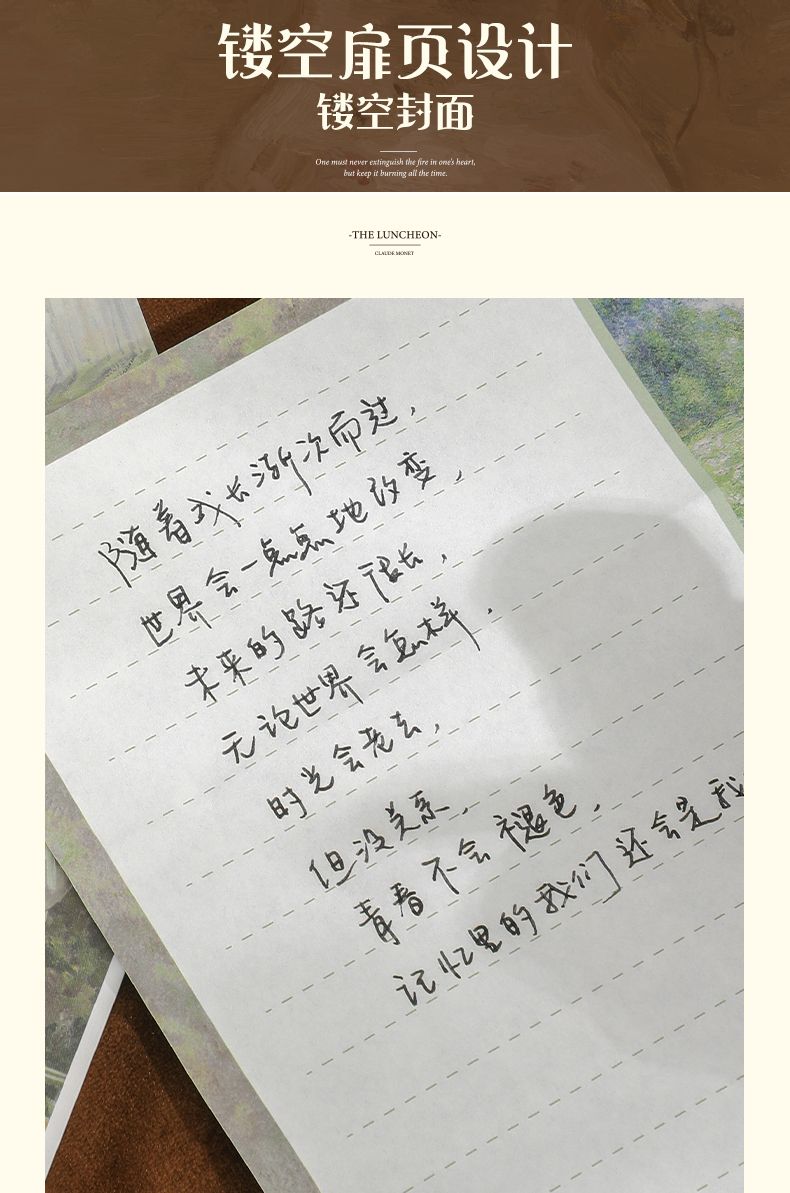 镂空扉页设计
镂空封面
One must never extinguish the fire in one's heart,
but keep it burning all the time.
-THE LUNCHEON-
CLAUDE MONET
随着成长渐次而过，
世界会一点点地改变，
未来的路还很长，
无论世界会怎样，
时光会老去，
但没关系，
青春不会褪色，
记忆里的我们还会是我